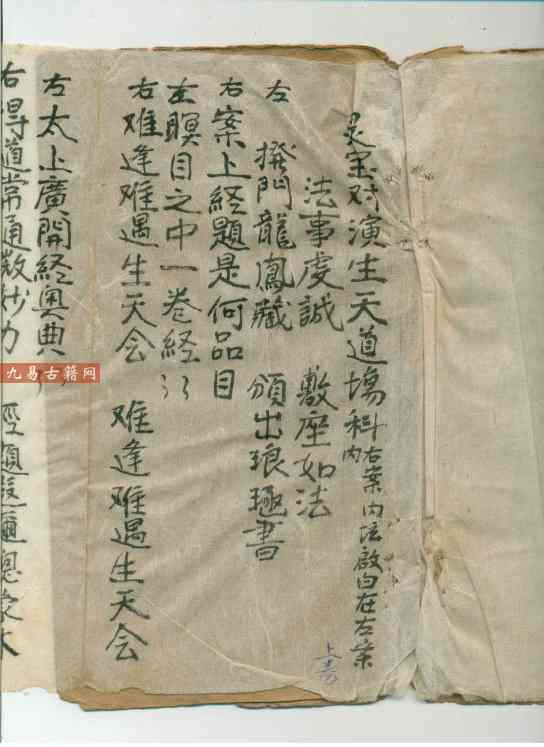 灵宝对演生天道場科内右案内坛啟白在左案
法事虔誠 敷座如法
左 撥閂龍鳳藏 頒出琅凾書
右案上経題是何品目
左瞑目之中一巻経
右难逢难遇生天会 难逢难遇生天会
左太上廣開経奥典
右得道常通微妙力
九易古籍网